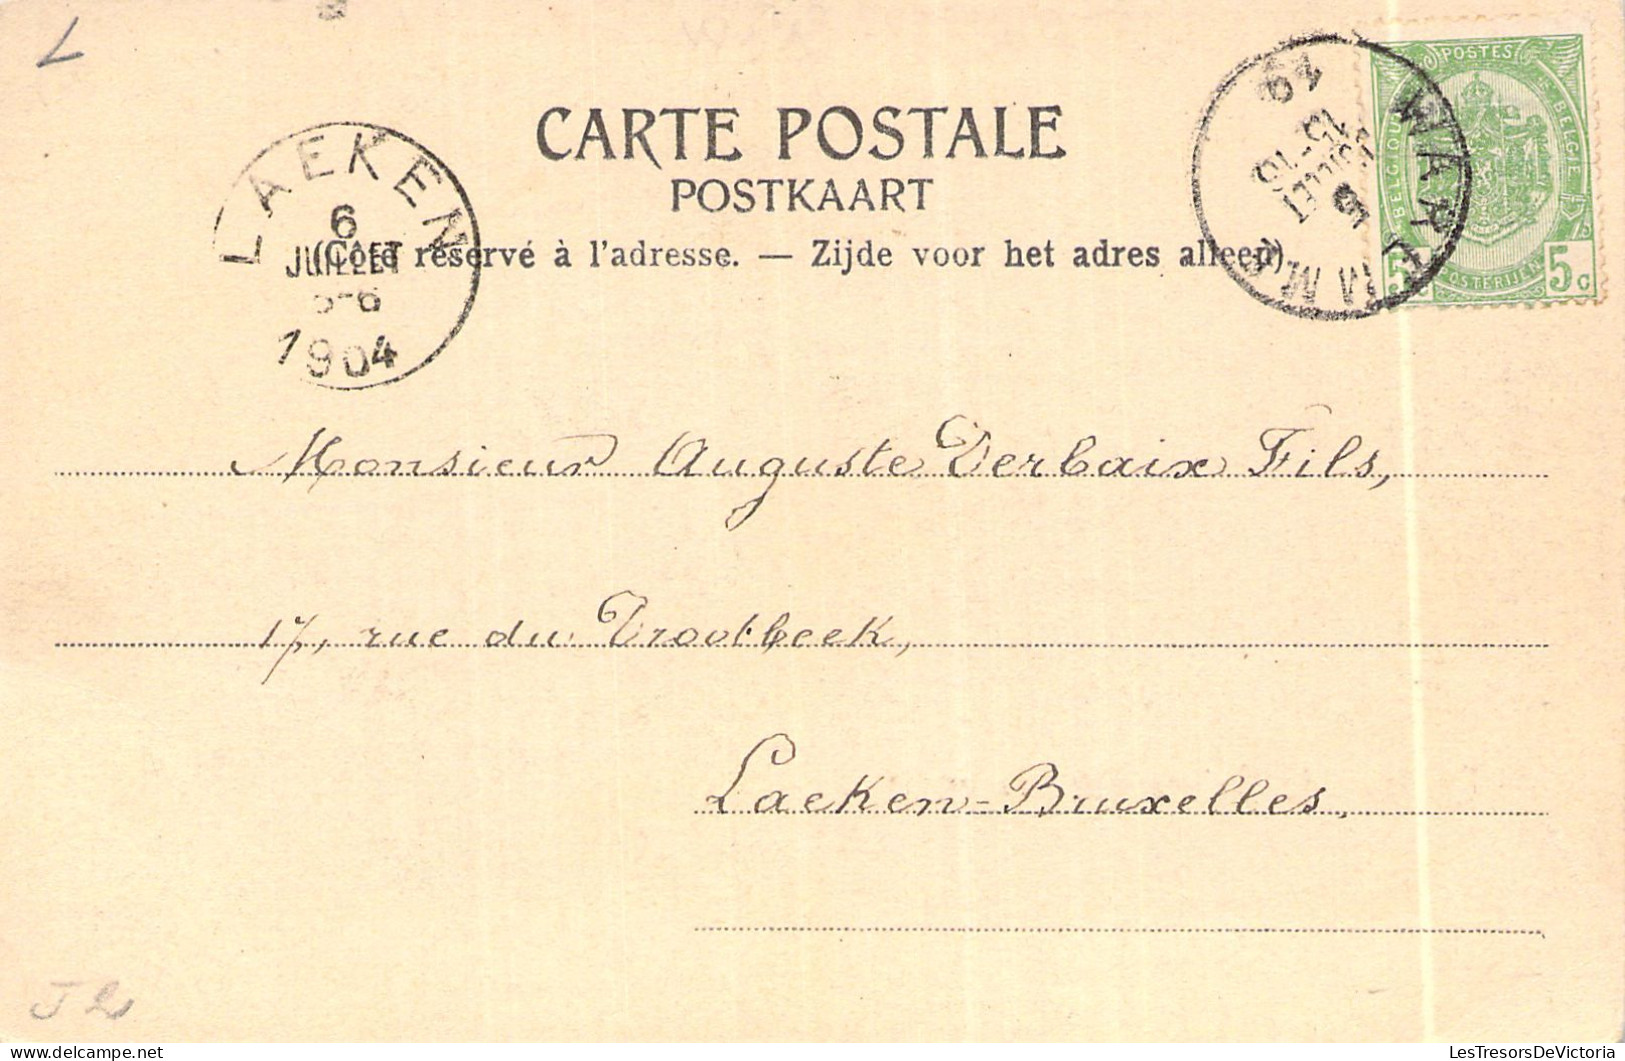 CARTE POSTALE
POSTKAART
(Côté réservé à l'adresse. — Zijde voor het adres alleen)
LAEKEN
6
JUILLET
5-6
1904
POSTES
BELGIQUE BELGIE
POSTERIJEN
5c 5c
JUILLET
04
Monsieur Auguste Derbaix Fils,
17, rue du Drootbeek,
Laeken-Bruxelles,
LesTresorsDeVictoria